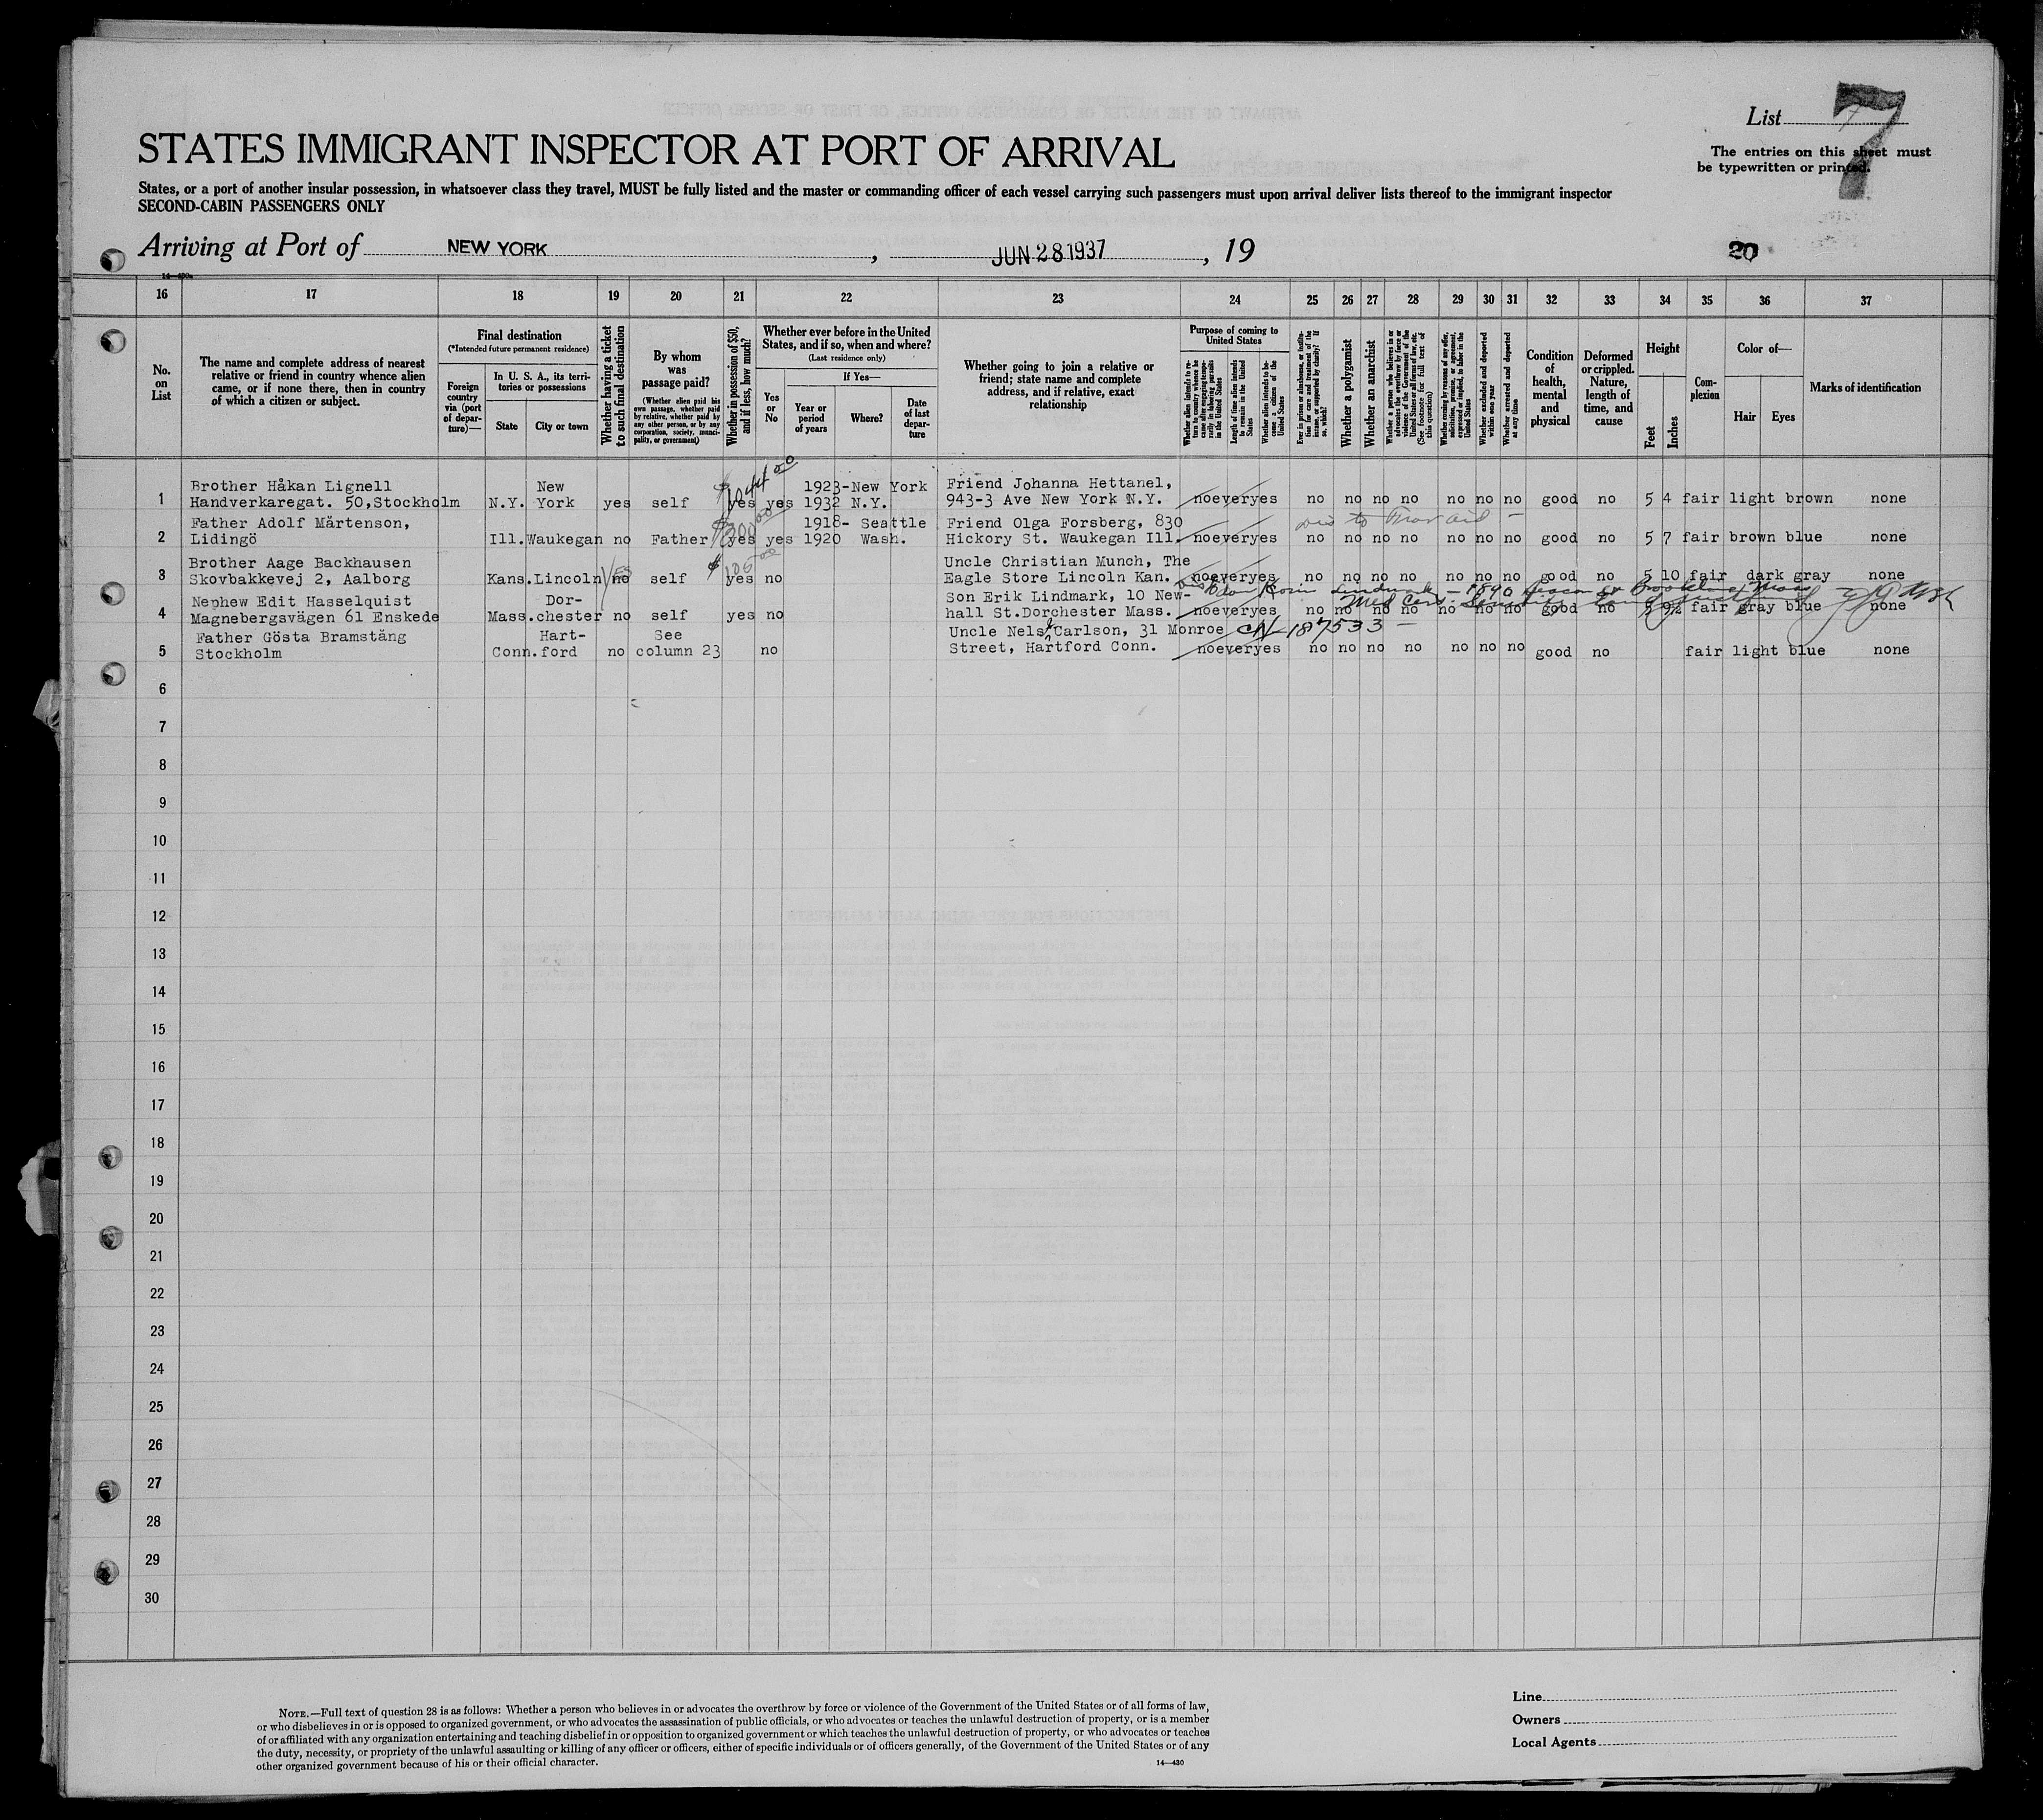 List 7
The entries on this sheet must
be typewritten or printed.
STATES IMMIGRANT INSPECTOR AT PORT OF ARRIVAL
States, or a port of another insular possession, in whatsoever class they travel, MUST be fully listed and the master or commanding officer of each vessel carrying such passengers must upon arrival deliver lists thereof to the immigrant inspector
SECOND-CABIN PASSENGERS ONLY
Arriving at Port of NEW YORK, JUN 28 1937, 19
20
16 17 18 19 20 21 22 23 24 25 26 27 28 29 30 31 32 33 34 35 36 37
No. on List
The name and complete address of nearest relative or friend in country whence alien came, or if none there, then in country of which a citizen or subject.
Final destination
(*Intended future permanent residence)
Foreign country via (port of departure)—
In U. S. A., its territories or possessions
State
City or town
Whether having a ticket to such final destination
By whom was passage paid?
(Whether alien paid his own passage, whether paid by relative, whether paid by any other person, or by any corporation, society, municipality, or government)
Whether in possession of $50, and if less, how much?
Whether ever before in the United States, and if so, when and where?
(Last residence only)
Yes or No
If Yes—
Year or period of years
Where?
Date of last departure
Whether going to join a relative or friend; state name and complete address, and if relative, exact relationship
Purpose of coming to United States
Whether alien intends to return to country whence he came after engaging temporarily in laboring pursuits in the United States
Length of time alien intends to remain in the United States
Whether alien intends to become a citizen of the United States
Ever in prison or almshouse, or institution for care and treatment of the insane, or supported by charity? If so, which?
Whether a polygamist
Whether an anarchist
Whether a person who believes in or advocates the overthrow by force or violence of the Government of the United States or all forms of law, etc. (See footnote for full text of this question)
Whether coming by reason of any offer, solicitation, promise, or agreement, expressed or implied, to labor in the United States
Whether excluded and deported within one year
Whether arrested and deported at any time
Condition of health, mental and physical
Deformed or crippled. Nature, length of time, and cause
Height
Feet
Inches
Complexion
Color of—
Hair
Eyes
Marks of identification
Brother Håkan Lignell New 1923-New York Friend Johanna Hettanel,
1 Handverkaregat. 50,Stockholm N.Y. York yes self yes yes 1932 N.Y. 943-3 Ave New York N.Y. no ever yes no no no no no no no good no 5 4 fair light brown none
Father Adolf Mårtenson, 1918- Seattle Friend Olga Forsberg, 830
2 Lidingö Ill. Waukegan no Father yes yes 1920 Wash. Hickory St. Waukegan Ill. no ever yes no no no no no no no good no 5 7 fair brown blue none
Brother Aage Backhausen Uncle Christian Munch, The
3 Skovbakkevej 2, Aalborg Kans. Lincoln no yes self yes no Eagle Store Lincoln Kan. no ever yes no no no no no no no good no 5 10 fair dark gray none
Nephew Edit Hasselquist Dor- Son Erik Lindmark, 10 New-
4 Magnebergsvägen 61 Enskede Mass. chester no self yes no hall St.Dorchester Mass. no ever yes no no no no no no no good no 5 9½ fair gray blue none
Father Gösta Bramstång Hart- See Uncle Nels Carlson, 31 Monroe 187533 —
5 Stockholm Conn. ford no column 23 no Street, Hartford Conn. no ever yes no no no no no no no good no fair light blue none
6
7
8
9
10
11
12
13
14
15
16
17
18
19
20
21
22
23
24
25
26
27
28
29
30
NOTE.—Full text of question 28 is as follows: Whether a person who believes in or advocates the overthrow by force or violence of the Government of the United States or of all forms of law,
or who disbelieves in or is opposed to organized government, or who advocates the assassination of public officials, or who advocates or teaches the unlawful destruction of property, or is a member
of or affiliated with any organization entertaining and teaching disbelief in or opposition to organized government or which teaches the unlawful destruction of property, or who advocates or teaches
the duty, necessity, or propriety of the unlawful assaulting or killing of any officer or officers, either of specific individuals or of officers generally, of the Government of the United States or of any
other organized government because of his or their official character.
14—430
Line
Owners
Local Agents